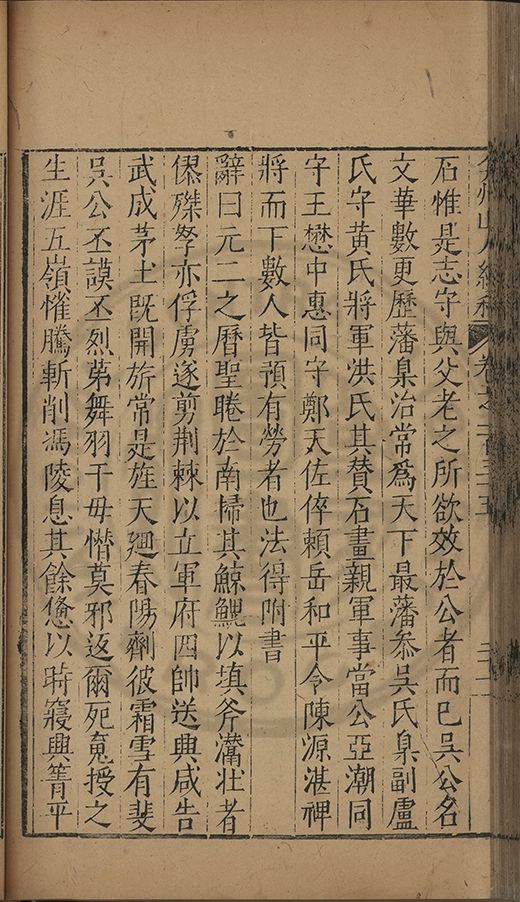 弇州山人續稿 卷之一百三十五 二十一
石惟是志守與父老之所欲效於公者而已吳公名
文華數更歷藩臬治常為天下最藩叅吳氏臬副盧
氏守黃氏將軍洪氏其贊石畫親軍事當公亞潮同
守王懋中惠同守鄭天佐倅賴岳和平令陳源湛裨
將而下數人皆預有勞者也法得附書
辭曰元二之曆聖睠於南掃其鯨鯢以填斧㶏壯者
傫殩孥亦俘虜遂剪荆棘以立軍府四帥送興咸告
武成茅土既開旂常是旌天迴春陽劑彼霜雪有斐
吳公丕謨丕烈苐舞羽干毋憯莫邪返爾死䰟授之
生涯五嶺慛騰斬削馮陵息其餘憊以蒔寢興箐平